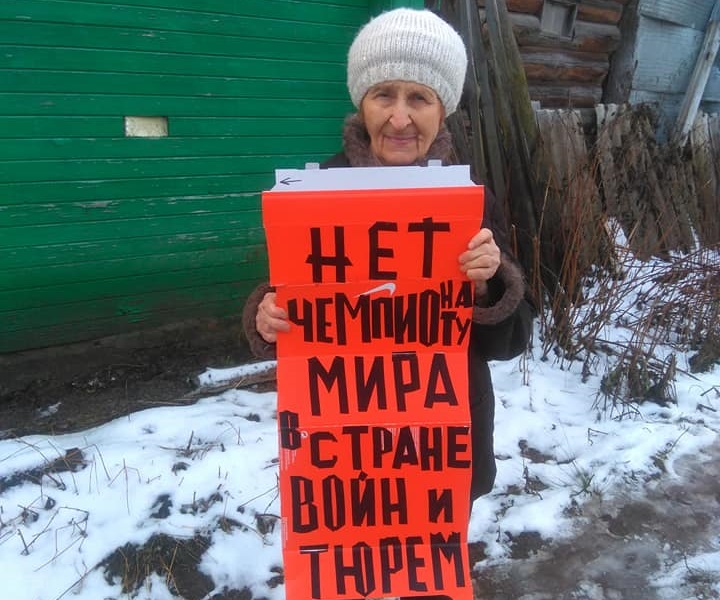 НЕТ
ЧЕМПИОНАТУ
МИРА
В СТРАНЕ
ВОЙН и
ТЮРЕМ